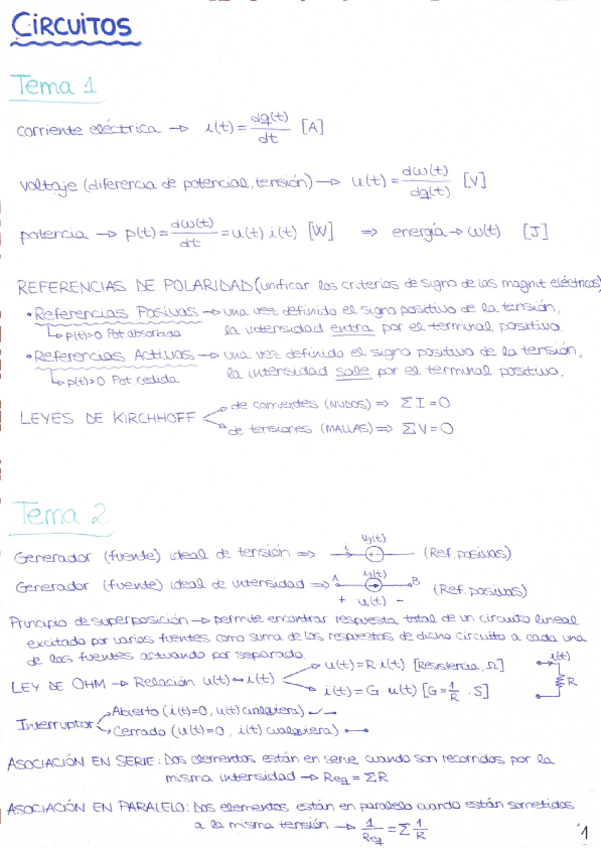 CIRCUITOS
Tema 1
corriente eléctrica → i(t) = dq(t)/dt [A]
voltaje (diferencia de potencial, tensión) → u(t) = dω(t)/dq(t) [V]
potencia → p(t) = dω(t)/dt = u(t) i(t) [W] ⇒ energía → ω(t) [J]
REFERENCIAS DE POLARIDAD (unificar los criterios de signo de las magnit eléctricas)
• Referencias Pasivas → una vez definido el signo positivo de la tensión,
↳ p(t)>0 Pot absorbida la intensidad entra por el terminal positivo.
• Referencias Activas → una vez definido el signo positivo de la tensión,
↳ p(t)>0 Pot cedida la intensidad sale por el terminal positivo.
LEYES DE KIRCHHOFF
de corrientes (NUDOS) ⇒ ΣI = 0
de tensiones (MALLAS) ⇒ ΣV = 0
Tema 2
Generador (fuente) ideal de tensión ⇒ i ug(t) + - (Ref. pasivas)
Generador (fuente) ideal de intensidad ⇒ A ig(t) B (Ref. pasivas)
+ u(t) -
Principio de superposición → permite encontrar respuesta total de un circuito lineal
excitado por varias fuentes como suma de las respuestas de dicho circuito a cada una
de las fuentes actuando por separado.
LEY DE OHM → Relación u(t) ↔ i(t)
u(t) = R i(t) [Resistencia, Ω]
i(t) = G u(t) [G = 1/R . S]
i(t)
R
Interruptor
Abierto (i(t)=0, u(t) cualquiera)
Cerrado (u(t)=0, i(t) cualquiera)
ASOCIACIÓN EN SERIE: Dos elementos están en serie cuando son recorridos por la
misma intensidad → Req = ΣR
ASOCIACIÓN EN PARALELO: Dos elementos están en paralelo cuando están sometidos
a la misma tensión → 1/Req = Σ 1/R
1